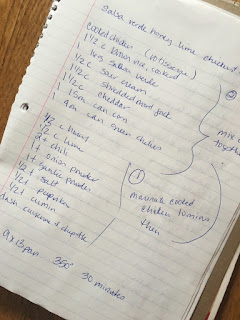 Salsa verde honey lime chicken
cooked chicken (rotisserie)
1 1/2 c brown rice cooked
1 salsa verde
1/2 c sour cream
1 1/2 c shredded mont jack
1 c cheddar
1 15oz can corn
1 4oz can green chilies
mix
together
1/2 c honey
1/2 c lime
2 t chili
1 t onion powder
1 t garlic powder
1/2 t salt
1/2 t paprika
1/2 t cumin
dash cayenne & chipotle
1
marinate cooked
chicken 20 mins
then
9x13 pan 350° 30 minutes